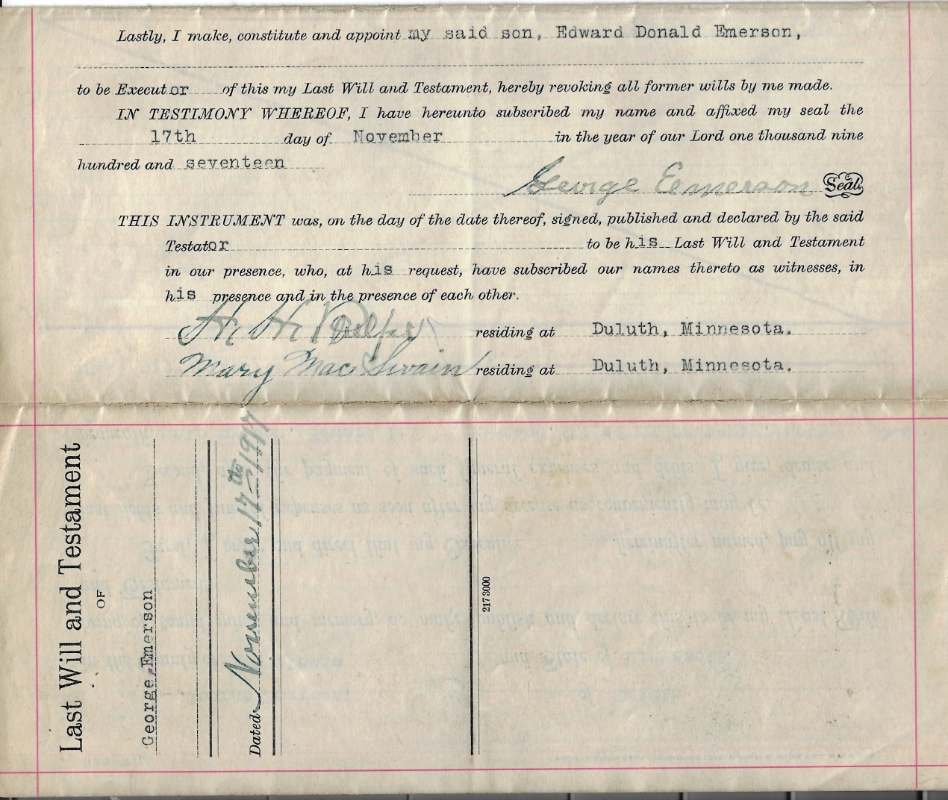 Lastly, I make, constitute and appoint my said son, Edward Donald Emerson,
to be Executor of this my Last Will and Testament, hereby revoking all former wills by me made.
IN TESTIMONY WHEREOF, I have hereunto subscribed my name and affixed my seal the
17th day of November in the year of our Lord one thousand nine
hundred and seventeen
George Emerson Seal
THIS INSTRUMENT was, on the day of the date thereof, signed, published and declared by the said
Testator to be his Last Will and Testament
in our presence, who, at his request, have subscribed our names thereto as witnesses, in
his presence and in the presence of each other.
H. H. residing at Duluth, Minnesota.
Mary Mac Swain residing at Duluth, Minnesota.
Last Will and Testament
OF
George Emerson
Dated November 17th 1917
217 3000